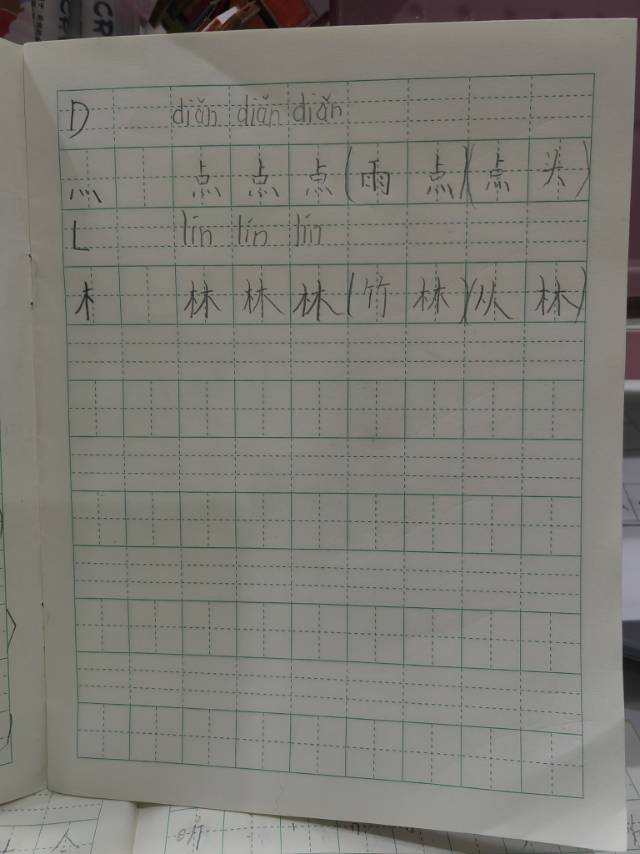 D diǎn diǎn diǎn
灬 点 点 点 (雨 点)(点 头)
L lín lín lín
木 林 林 林 (竹 林)(从 林)